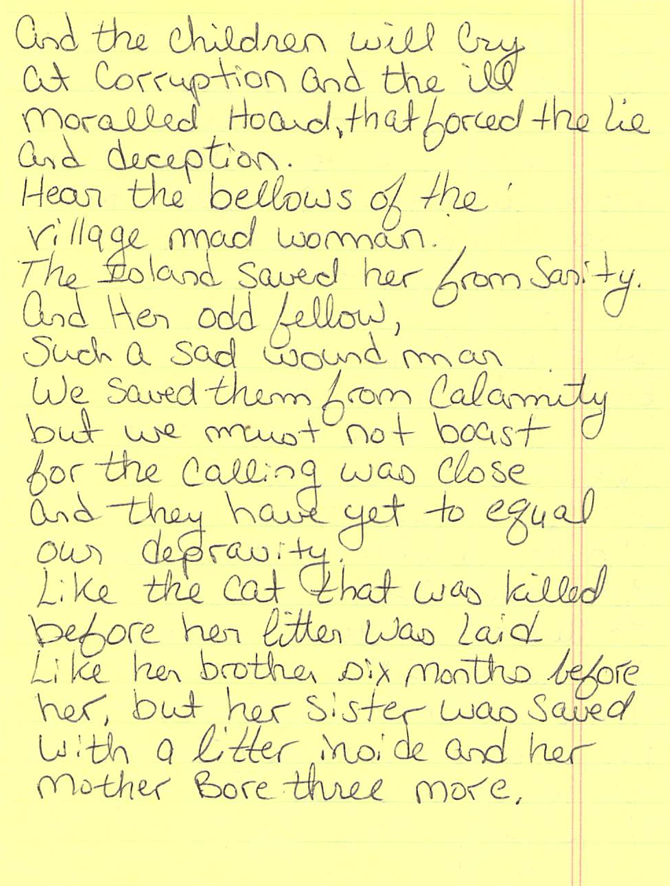 And the children will Cry
at Corruption and the ill
moralled Hoard, that forced the Lie
and deception.
Hear the bellows of the
village mad woman.
The Island saved her from Sanity.
And Her odd fellow,
Such a sad wound man
We saved them from Calamity
but we must not boast
for the calling was close
and they have yet to equal
our depravity.
Like the cat that was killed
before her litter was Laid
Like her brother six months before
her, but her sister was saved
with a litter inside and her
mother Bore three more.